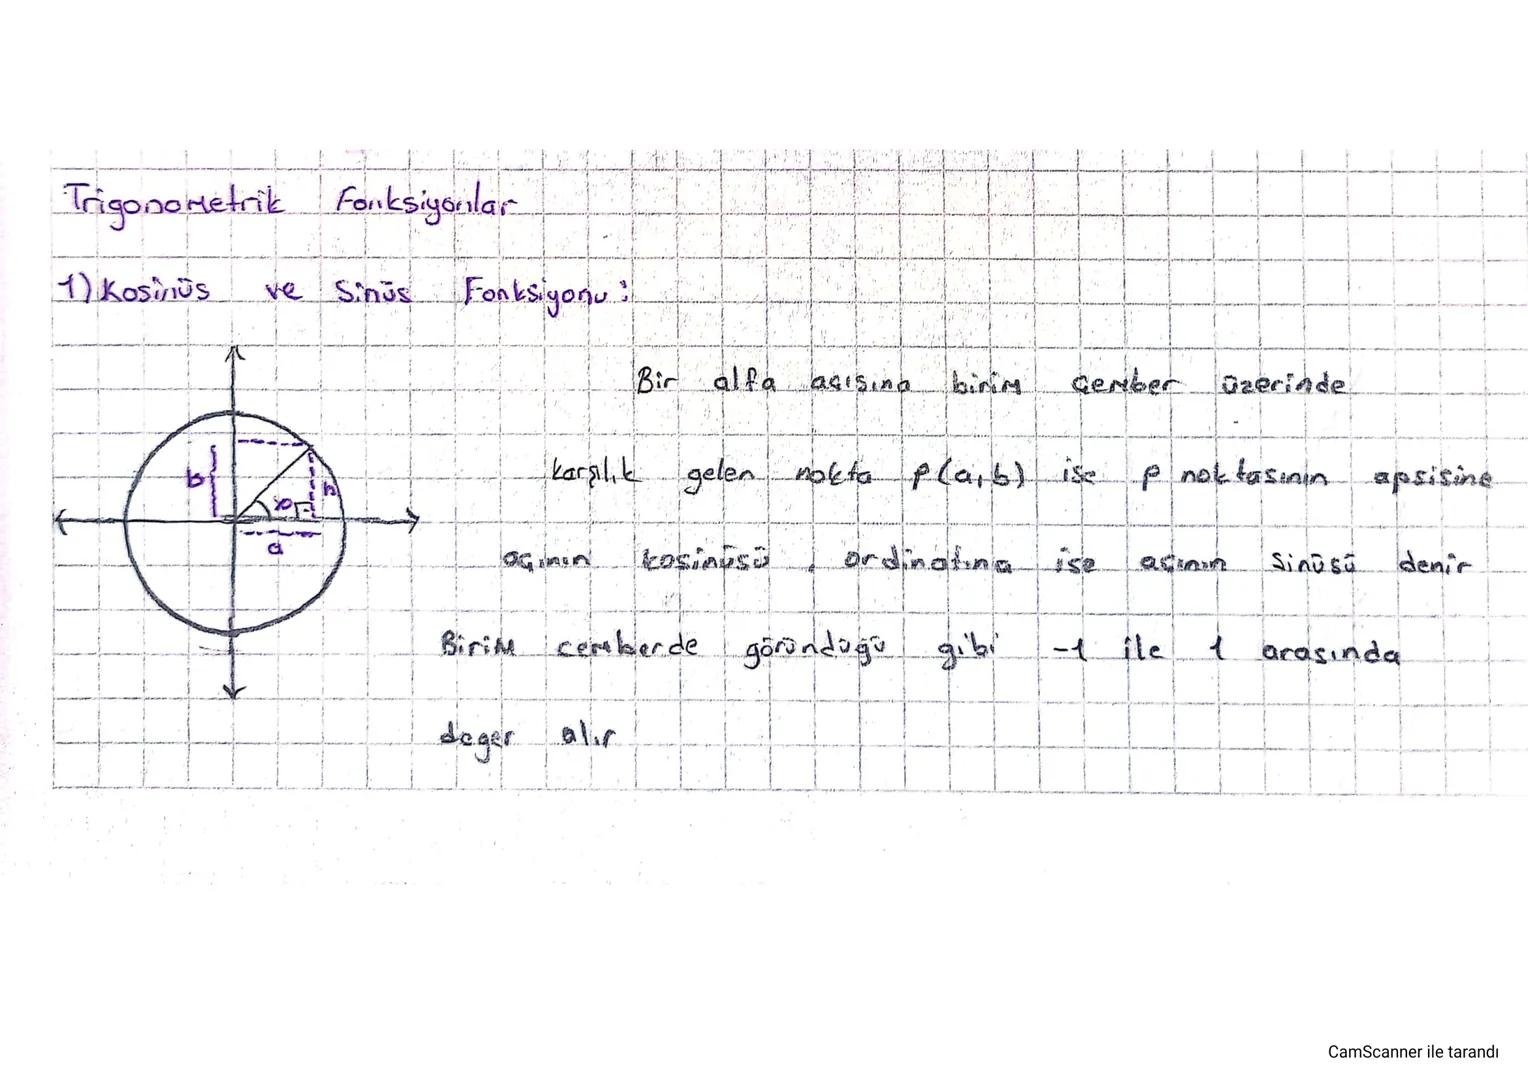 Trigonometrik Fonksiyonlar
1) Kosinüs ve Sinüs Fonksiyonu:
Bir alfa açısına birim çember üzerinde
karşılık gelen nokta p(a,b) ise p noktasının apsisine
açının kosinüsü, ordinatına ise açının sinüsü denir
Birim çemberde göründüğü gibi -1 ile 1 arasında
değer alır
b
a
CamScanner ile tarandı